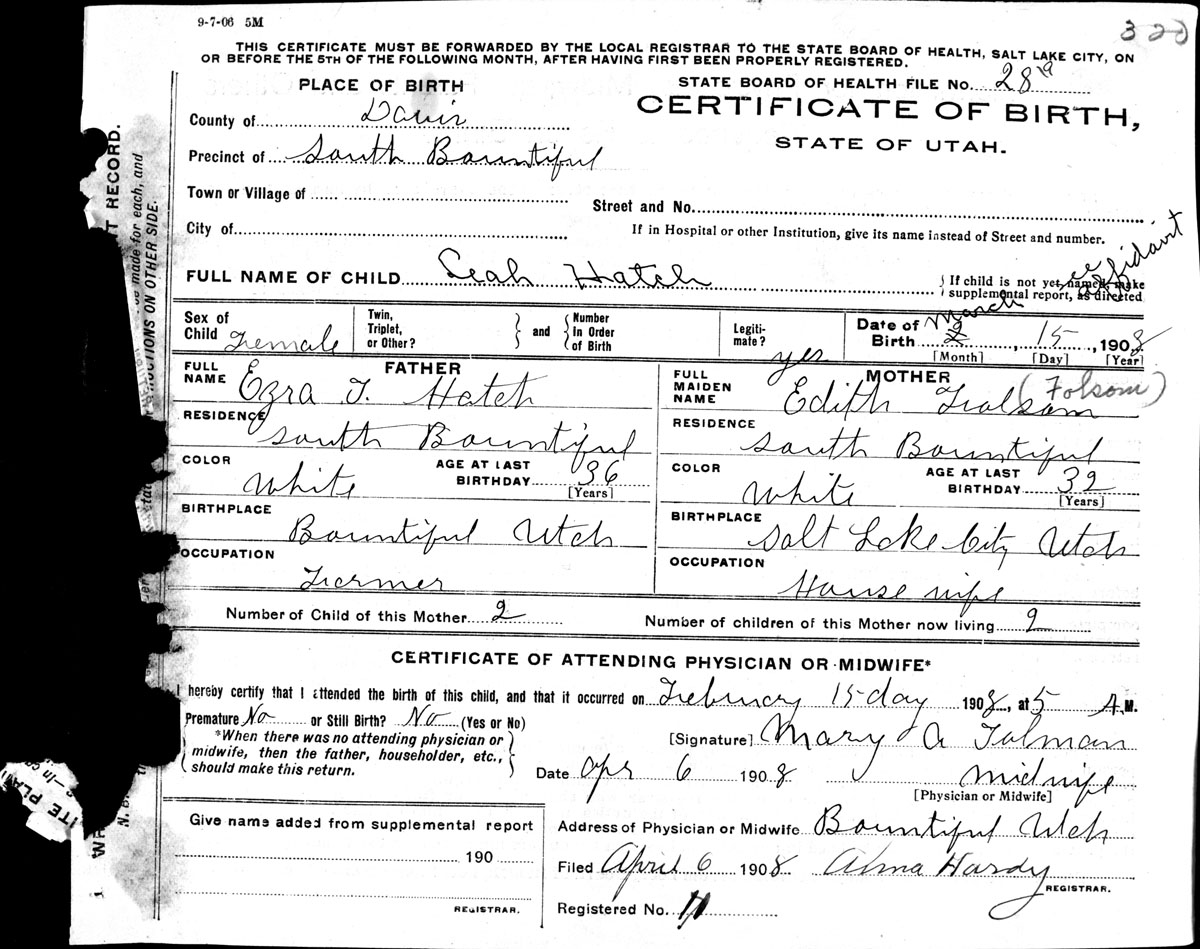 9-7-06 5M
320
THIS CERTIFICATE MUST BE FORWARDED BY THE LOCAL REGISTRAR TO THE STATE BOARD OF HEALTH, SALT LAKE CITY, ON
OR BEFORE THE 5TH OF THE FOLLOWING MONTH, AFTER HAVING FIRST BEEN PROPERLY REGISTERED.
PLACE OF BIRTH
STATE BOARD OF HEALTH FILE No. 28
County of Davis
CERTIFICATE OF BIRTH,
STATE OF UTAH.
Precinct of South Bountiful
Town or Village of
Street and No.
City of
If in Hospital or other Institution, give its name instead of Street and number.
FULL NAME OF CHILD Leah Hatch
If child is not yet named, make
supplemental report, as directed
affidavit
Sex of Child Female
Twin, Triplet, or Other?
and
Number In Order of Birth
Legiti-mate? yes
Date of Birth March 2, 15, 1908
[Month] [Day] [Year]
FATHER
FULL NAME Ezra T. Hatch
MOTHER
FULL MAIDEN NAME Edith Frolsom (Folsom)
RESIDENCE South Bountiful
RESIDENCE South Bountiful
COLOR White
AGE AT LAST BIRTHDAY 36
[Years]
COLOR White
AGE AT LAST BIRTHDAY 32
[Years]
BIRTHPLACE Bountiful Utah
BIRTHPLACE Salt Lake City Utah
OCCUPATION Farmer
OCCUPATION House wife
Number of Child of this Mother 2
Number of children of this Mother now living 2
CERTIFICATE OF ATTENDING PHYSICIAN OR MIDWIFE*
I hereby certify that I attended the birth of this child, and that it occurred on February 15 day 1908, at 5 A.M.
Premature No or Still Birth? No (Yes or No)
*When there was no attending physician or
midwife, then the father, householder, etc.,
should make this return.
[Signature] Mary A Tolman
Date Apr 6 1908 Midwife
[Physician or Midwife]
Give name added from supplemental report
190
REGISTRAR.
Address of Physician or Midwife Bountiful Utah
Filed April 6 1908 Alma Hardy
REGISTRAR.
Registered No. 11
T RECORD.
be made for each, and
INSTRUCTIONS ON OTHER SIDE.
N. B.